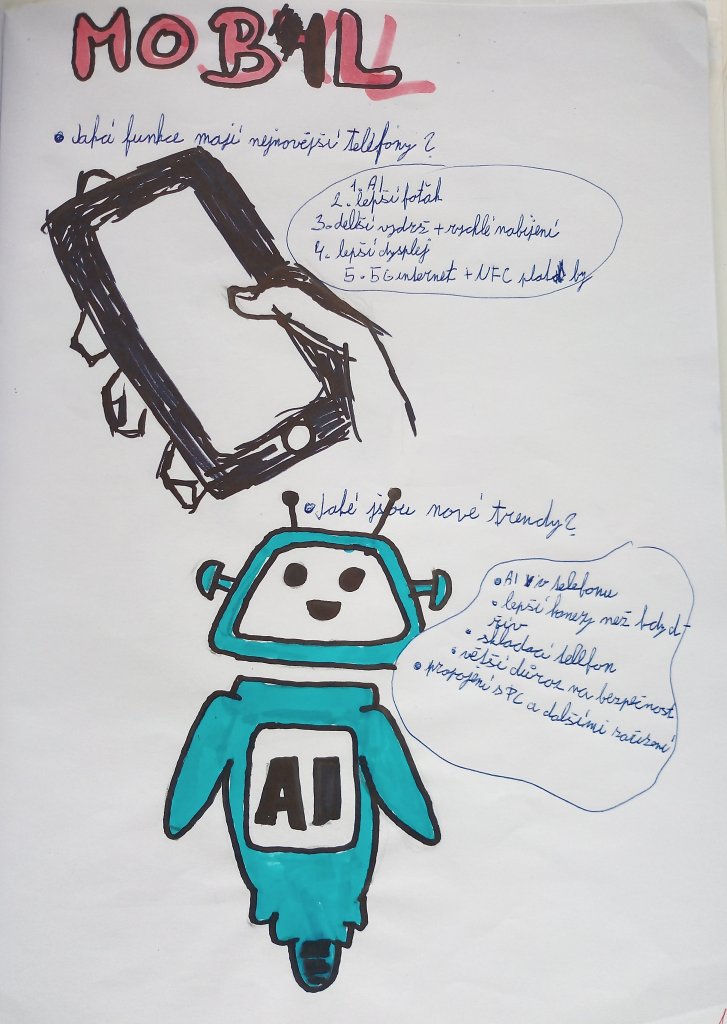 MOBIL
• Jaká funkce mají nejnovější teléfony?
1. AI
2. lepší foťák
3. delší vydrž + rychlé nabíjení
4. lepší dysplej
5. 5G internet + NFC platby
• Jaké jsou nové trendy?
• AI v telefonu
• lepší kamery než kdy d-
řív
• skládací telefon
• větší důraz na bezpečnost
• propojení s PC a dalšími zařízení
AI